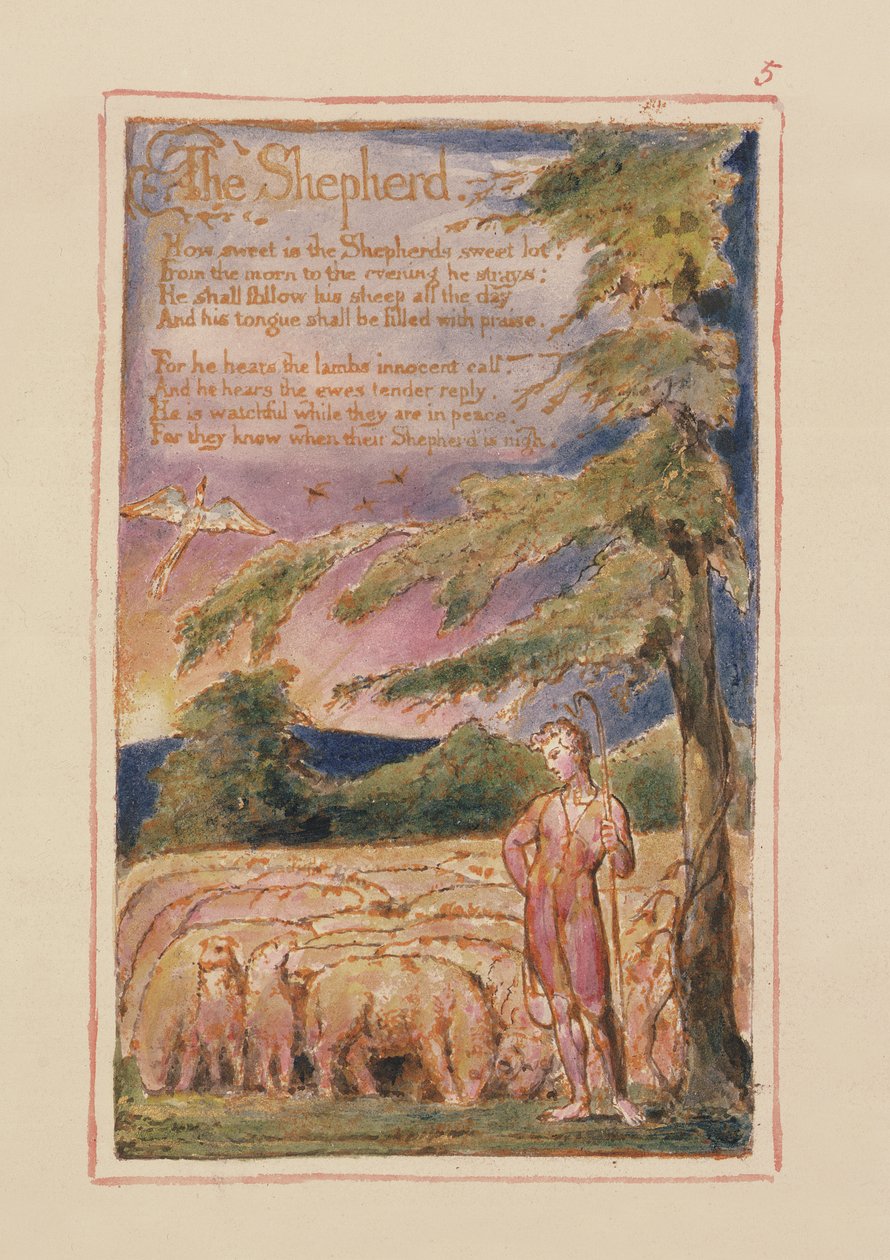 5
The Shepherd.
How sweet is the Shepherds sweet lot!
From the morn to the evening he strays:
He shall follow his sheep all the day
And his tongue shall be filled with praise.
For he hears the lambs innocent call.
And he hears the ewes tender reply.
He is watchful while they are in peace.
For they know when their Shepherd is nigh.